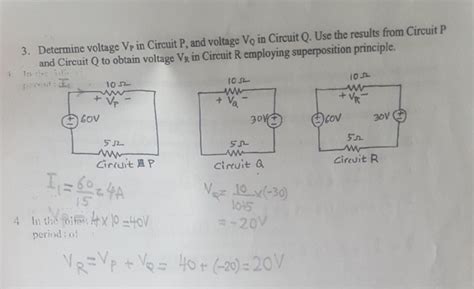 3. Determine voltage VP in Circuit P, and voltage VQ in Circuit Q. Use the results from Circuit P
and Circuit Q to obtain voltage VR in Circuit R employing superposition principle.
10Ω
+ VP −
60V
5Ω
Circuit P
10Ω
+ VQ −
30V
5Ω
Circuit Q
10Ω
+ VR −
60V
30V
5Ω
Circuit R
I1 = 60/15 = 4A
4 × 10 = 40V
VQ = 10/10+5 × (-30)
= -20V
4. In the
period
VR = VP + VQ = 40 + (-20) = 20V